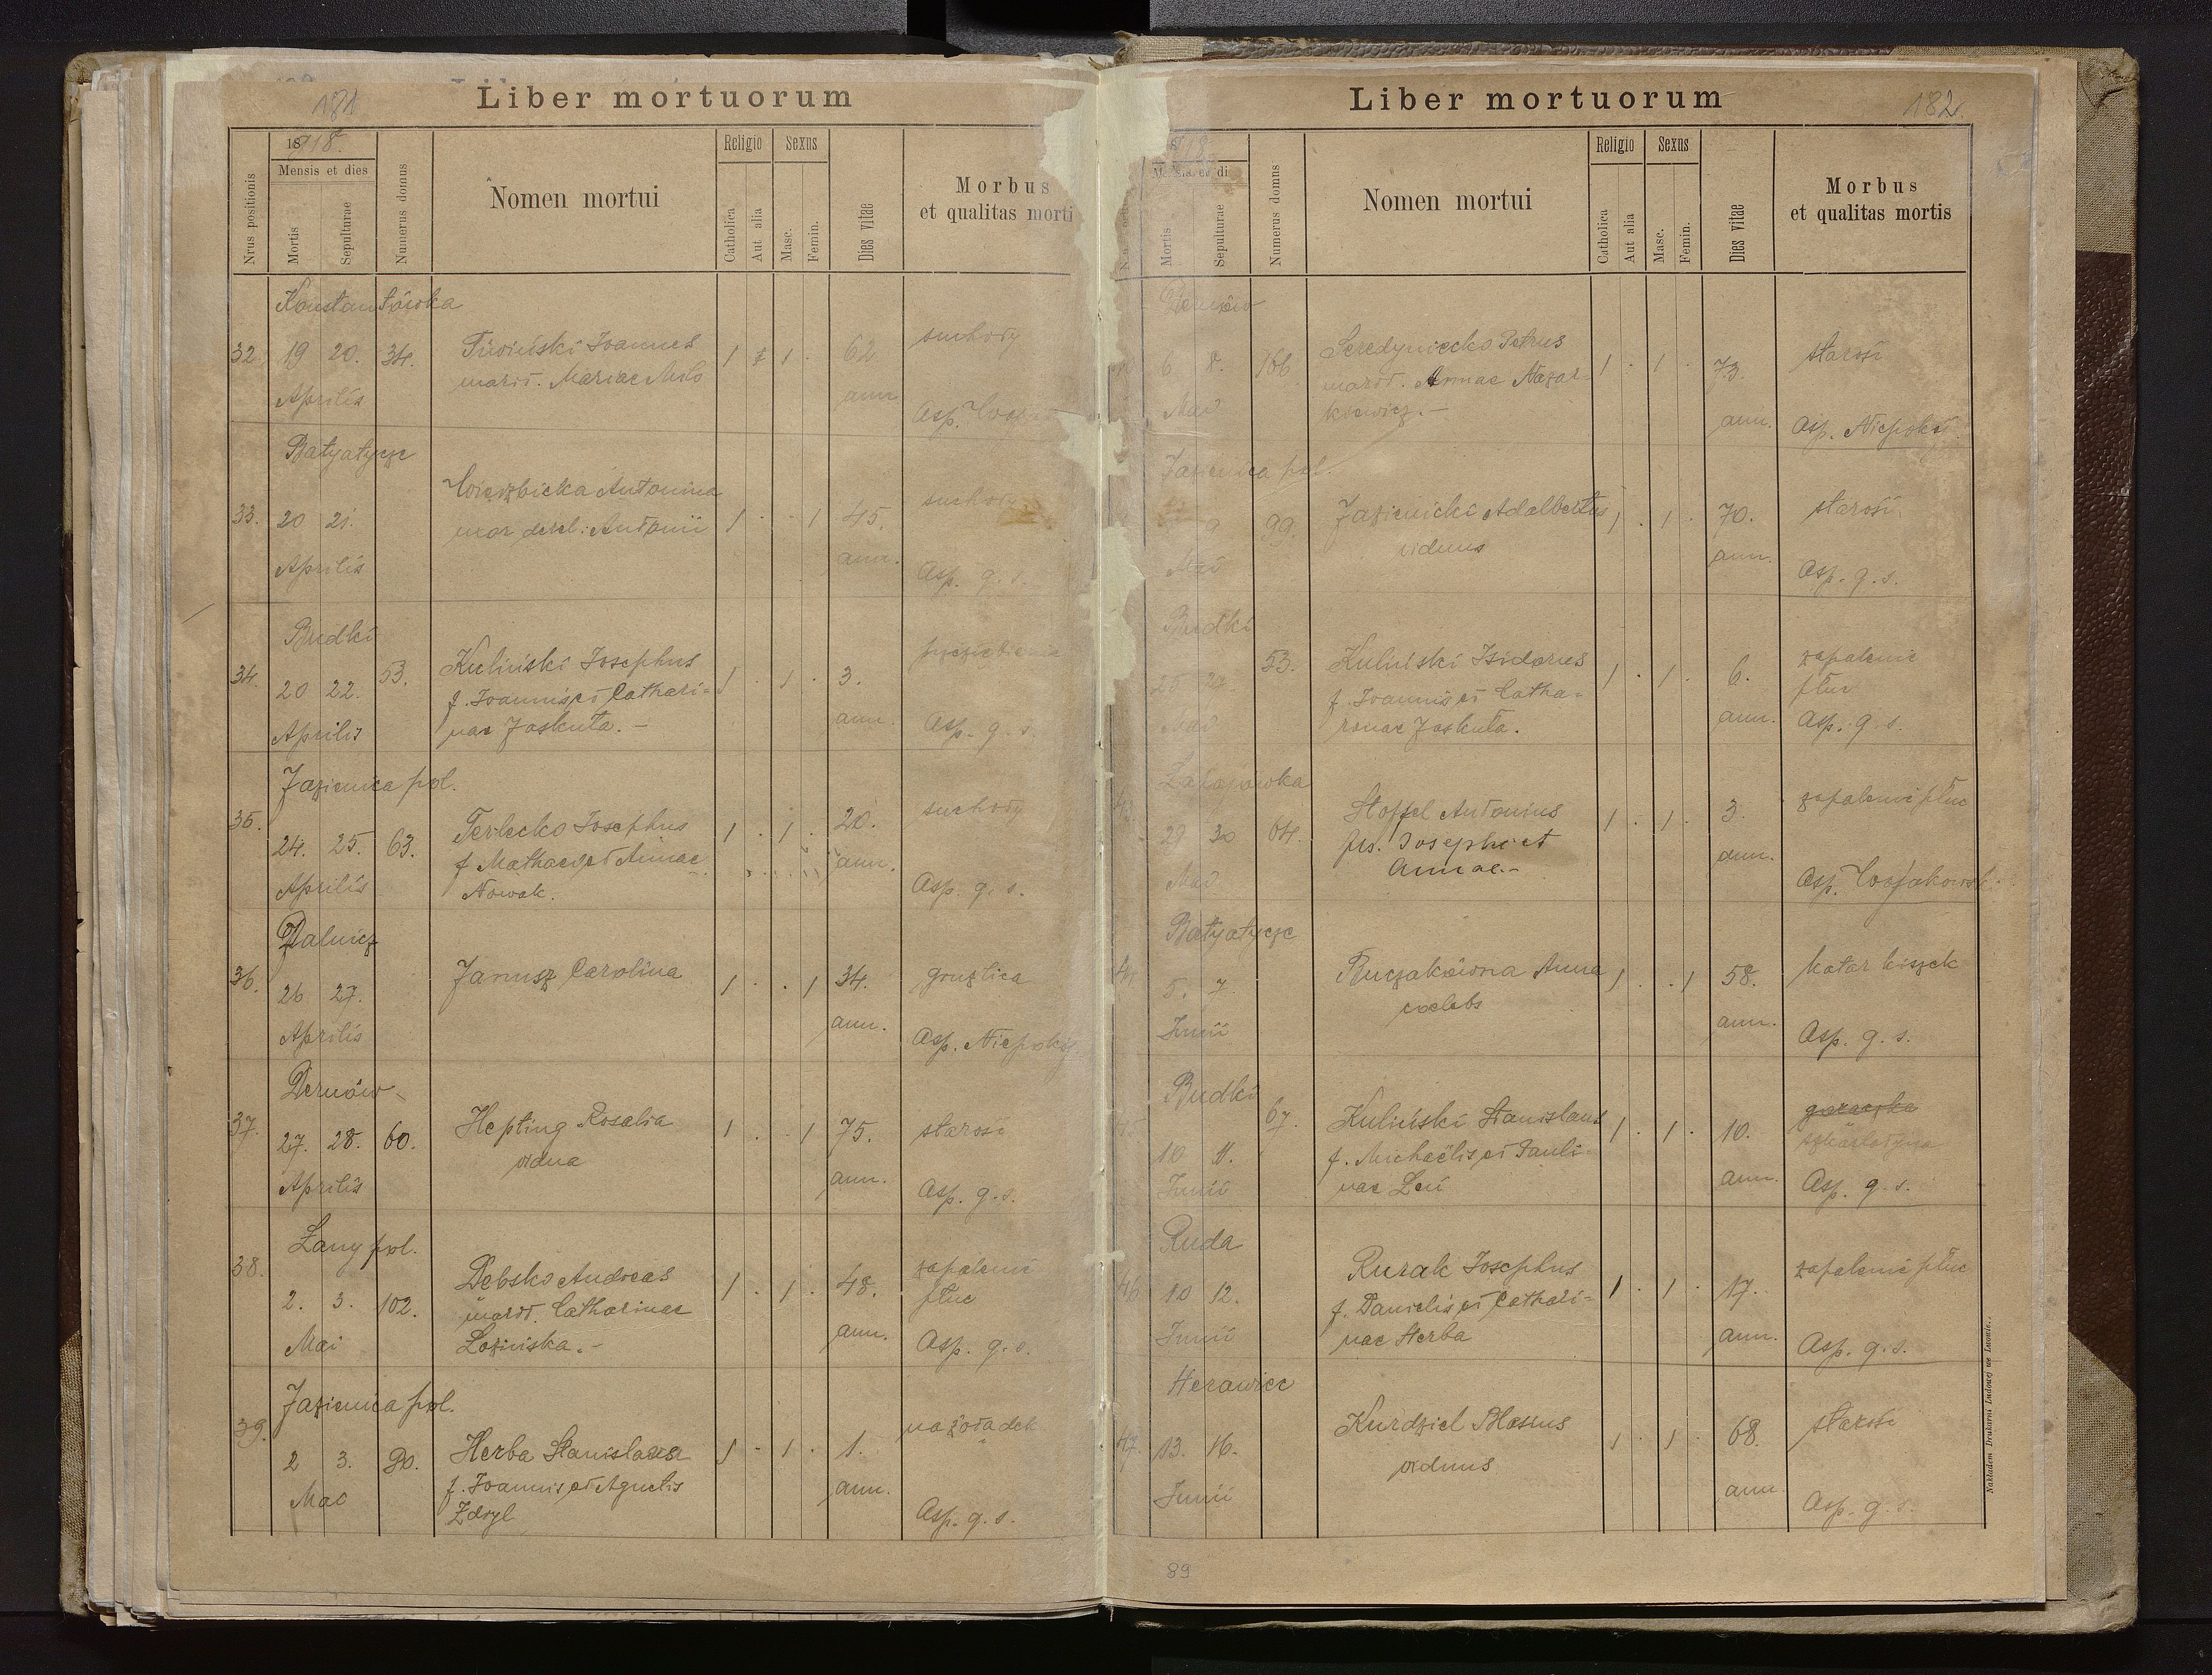 181
Liber mortuorum
1918.
Mensis et dies
Nrus positionis
Mortis
Sepulturae
Numerus domus
Nomen mortui
Religio
Catholica
Aut alia
Sexus
Masc.
Femin.
Dies vitae
Morbus
et qualitas morti
Konstantówka
32. 19 20. 34. Tiwiński Joannes 1 1 . 62 suchoty
marit. Mariae Miło ann
Aprilis Asp.
Batyatycze
33. 20 21. Wierzbicka Antonina 1 . . 1 45. suchoty
uxor derel. Antonii ann.
Aprilis Asp. g. s.
Budki
34. 20 22. 53. Kuliński Josephus 1 . 1 . 3.
f. Joannis et Cathari-
Aprilis nae Joskuta. – ann. Asp. g. s.
Jazienica pol.
35. 24. 25. 63. Terlecko Josephus 1 . 1 . 20. suchoty
f. Mathaei et Annae ann.
Aprilis Nowak. Asp. g. s.
Dalnicz
36. 26 27. Janusz Carolina 1 . . 1 34. gruźlica
Aprilis ann. Asp. Niepokój
Dernów
37. 27. 28. 60. Hepting Rosalia 1 . . 1 75. starość
vidua
Aprilis ann. Asp. g. s.
Łany pol.
38. 2. 3. 102. Debsko Andreas 1 . 1 . 48. zapalenie
marit. Catharinae płuc
Mai Łozińska. – ann. Asp. g. s.
Jazienica pol.
39. 2 3. 90. Herba Stanislaus 1 . 1 . 1. na żołądek
f. Joannis et Agnetis ann.
Mai Zdryl Asp. g. s.
182.
Liber mortuorum
Mortis
Sepulturae
Numerus domus
Nomen mortui
Religio
Catholica
Aut alia
Sexus
Masc.
Femin.
Dies vitae
Morbus
et qualitas mortis
Dernów
6. 8. 166 Seredyniecko Petrus 1 . 1 . 73. starość
marit. Annae Nazar-
Mai kiewicz. – ann. Asp. Niepokój
Jazienica pol.
9 99. Jazienicki Adalbertus 1 . 1 . 70. starość
viduus ann.
Mai Asp. g. s.
Budki
25 53. Kuliński Isidorus 1 . 1 . 6. zapalenie
f. Joannis et Catha- płuc
Mai rinae Joskuta. ann. Asp. g. s.
Zapałówka
29 30 64. Stoffel Antonius 1 . 1 . 3. zapalenie płuc
fils. Josephi et ann.
Mai Annae.– Asp. Wojakowski
Batyatycze
5. 7. Buczakówna Anna 1 . . 1 58. katar kiszek
coelebs
Junii ann. Asp. g. s.
Budki
10 11. 67. Kuliński Stanislaus 1 . 1 . 10. gorączka
szkarlatyna
f. Michaëlis et Pauli-
Junii nae Leń ann. Asp. g. s.
Ruda
46 10 12. Rurak Josephus 1 . 1 . 17. zapalenie płuc
f. Danielis et Cathari-
Junii nae Herba ann. Asp. g. s.
Herawiec
47. 13. 16. Kurdziel Blasius 1 . 1 68. starość
viduus
Junii ann Asp. g. s.
Nakładem Drukarni Ludowej we Lwowie.
89